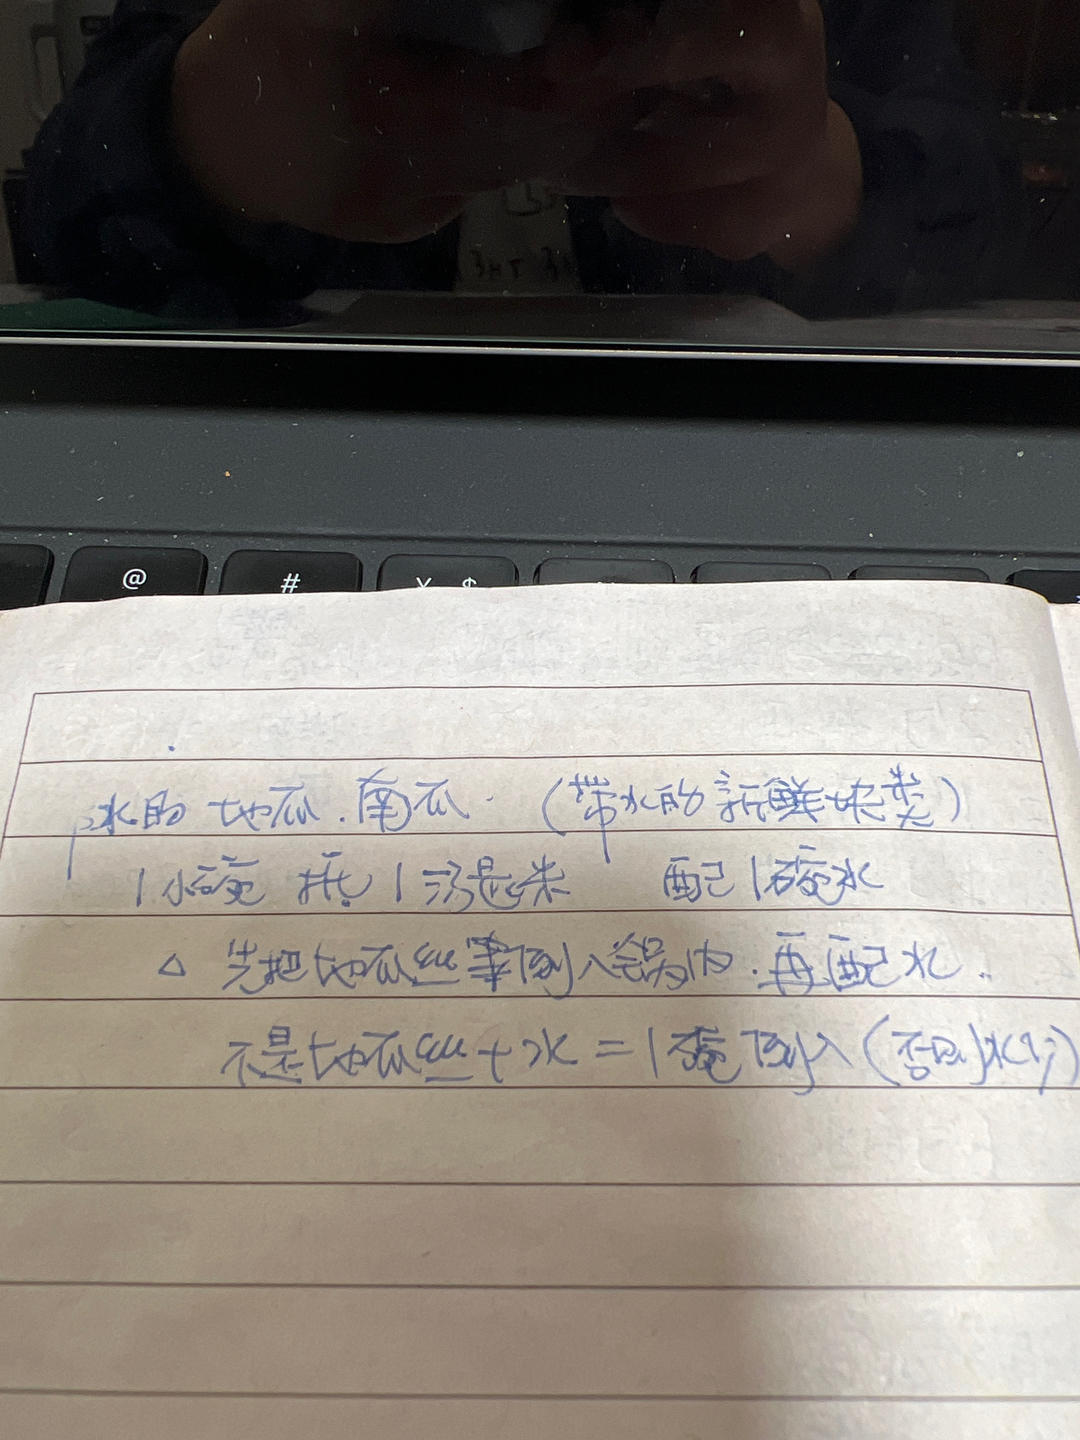 @ # ¥ $
水的 地瓜.南瓜. (带水的新鲜块类)
1小碗 抵1汤匙米 配1碗水
△ 先把地瓜丝倒入锅内.再配水.
不是地瓜丝+水=1碗倒入(否则水少)